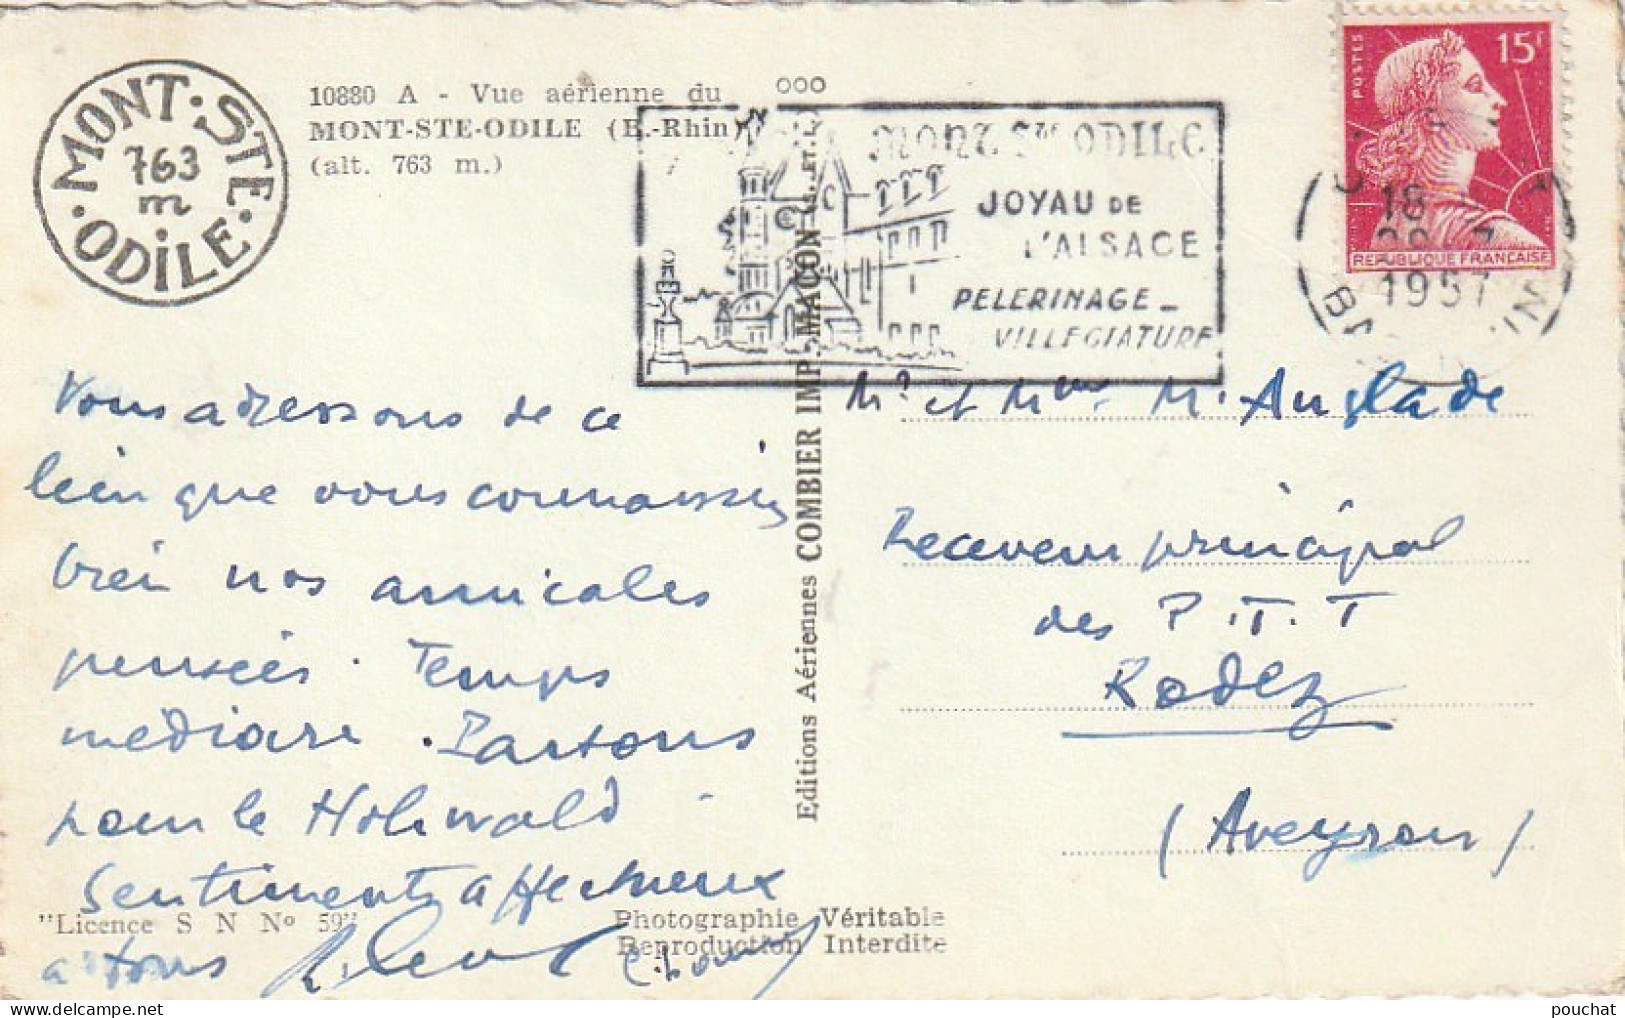 MONT·STE·ODILE·
763
m
10880 A - Vue aérienne du
MONT-STE-ODILE (B.-Rhin)
(alt. 763 m.)
MONT Ste ODILE
JOYAU DE
L'ALSACE
PELERINAGE -
VILLEGIATURE
POSTES
15F
REPUBLIQUE FRANÇAISE
18
1957
Vous adressons de ce
lieu que vous connaissez
bien nos amicales
pensées. Temps
médiocre. Partons
pour le Hohwald
Sentiments affectueux
a tous
Editions Aériennes COMBIER IMP. MACON
Mr et Mme M. Anglade
Receveur principal
des P.T.T
Rodez
(Aveyron)
"Licence S N No 59"
Photographie Véritable
Reproduction Interdite
pouchat